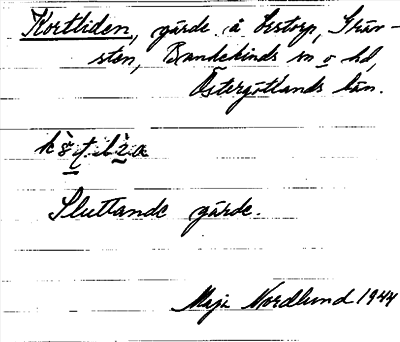 Kortliden, gärde å Orstorp, Skär-
sten, Bandekinds sn o hd,
Östergötlands län.
Sluttande gärde.
Maja Nordlund 1944